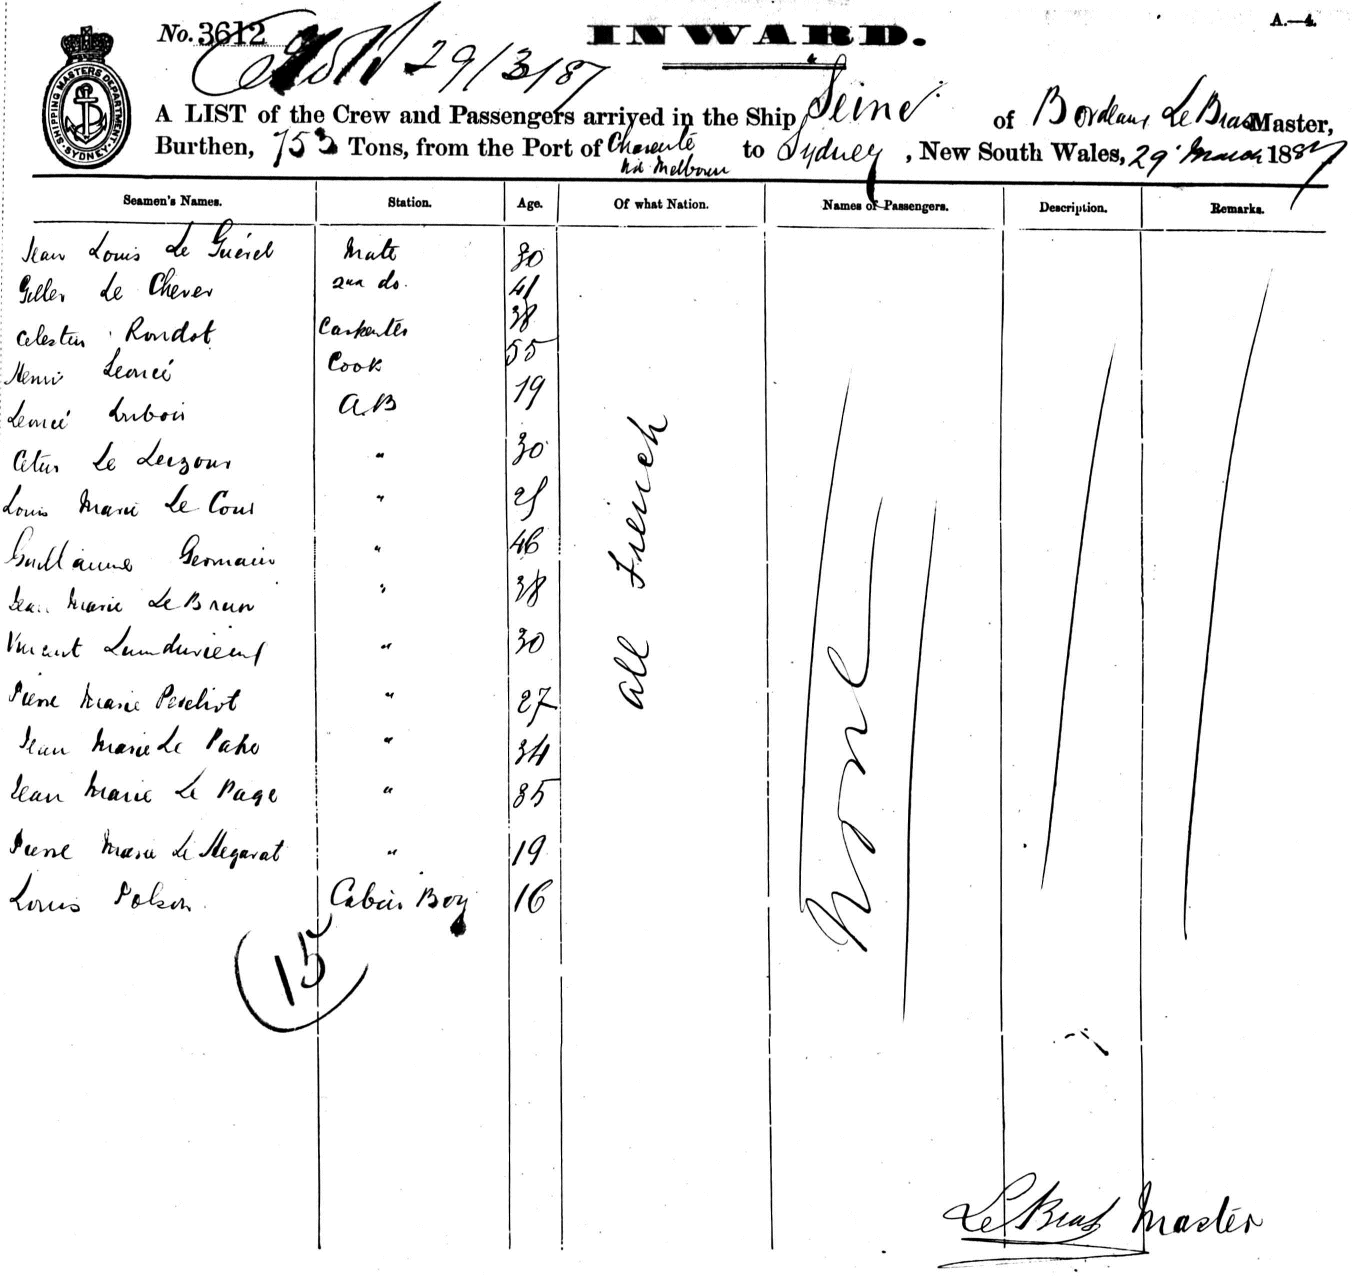 No. 3612
INWARD.
A.—4.
29/3/87
SHIPPING MASTERS DEPARTMENT SYDNEY
A LIST of the Crew and Passengers arrived in the Ship Seine of Bordeaux Le Bras Master,
Burthen, 753 Tons, from the Port of Charente to Sydney, New South Wales, 29 March 1887
via Melbourn
Seamen's Names. Station. Age. Of what Nation. Names of Passengers. Description. Remarks.
Jean Louis Le Guérel Mate 30
Le Chever 2nd do. 41
Celestin Rondot Carpenter 38
Henri Leoncé Cook 55
Leoncé Dubois A.B 19
Le " 30
Louis Marie Le Cour " 25
Guillaume Germain " 46
Jean Marie Le Brun " 38
Vincent " 30
Pierre Marie " 27
Jean Marie Le " 34
Jean Marie Le Page " 35
Pierre Marie Le Hegarat " 19
Louis Cabin Boy 16
All French
None
15
Le Bras Master